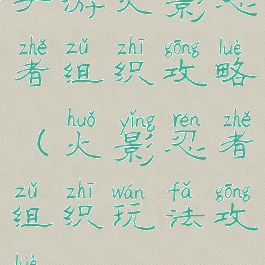 手游火影忍
zhě zǔ zhī gōng lüè
者组织攻略
huǒ yǐng rěn zhě
（火影忍者
zǔ zhī wán fǎ gōng
组织玩法攻
lüè